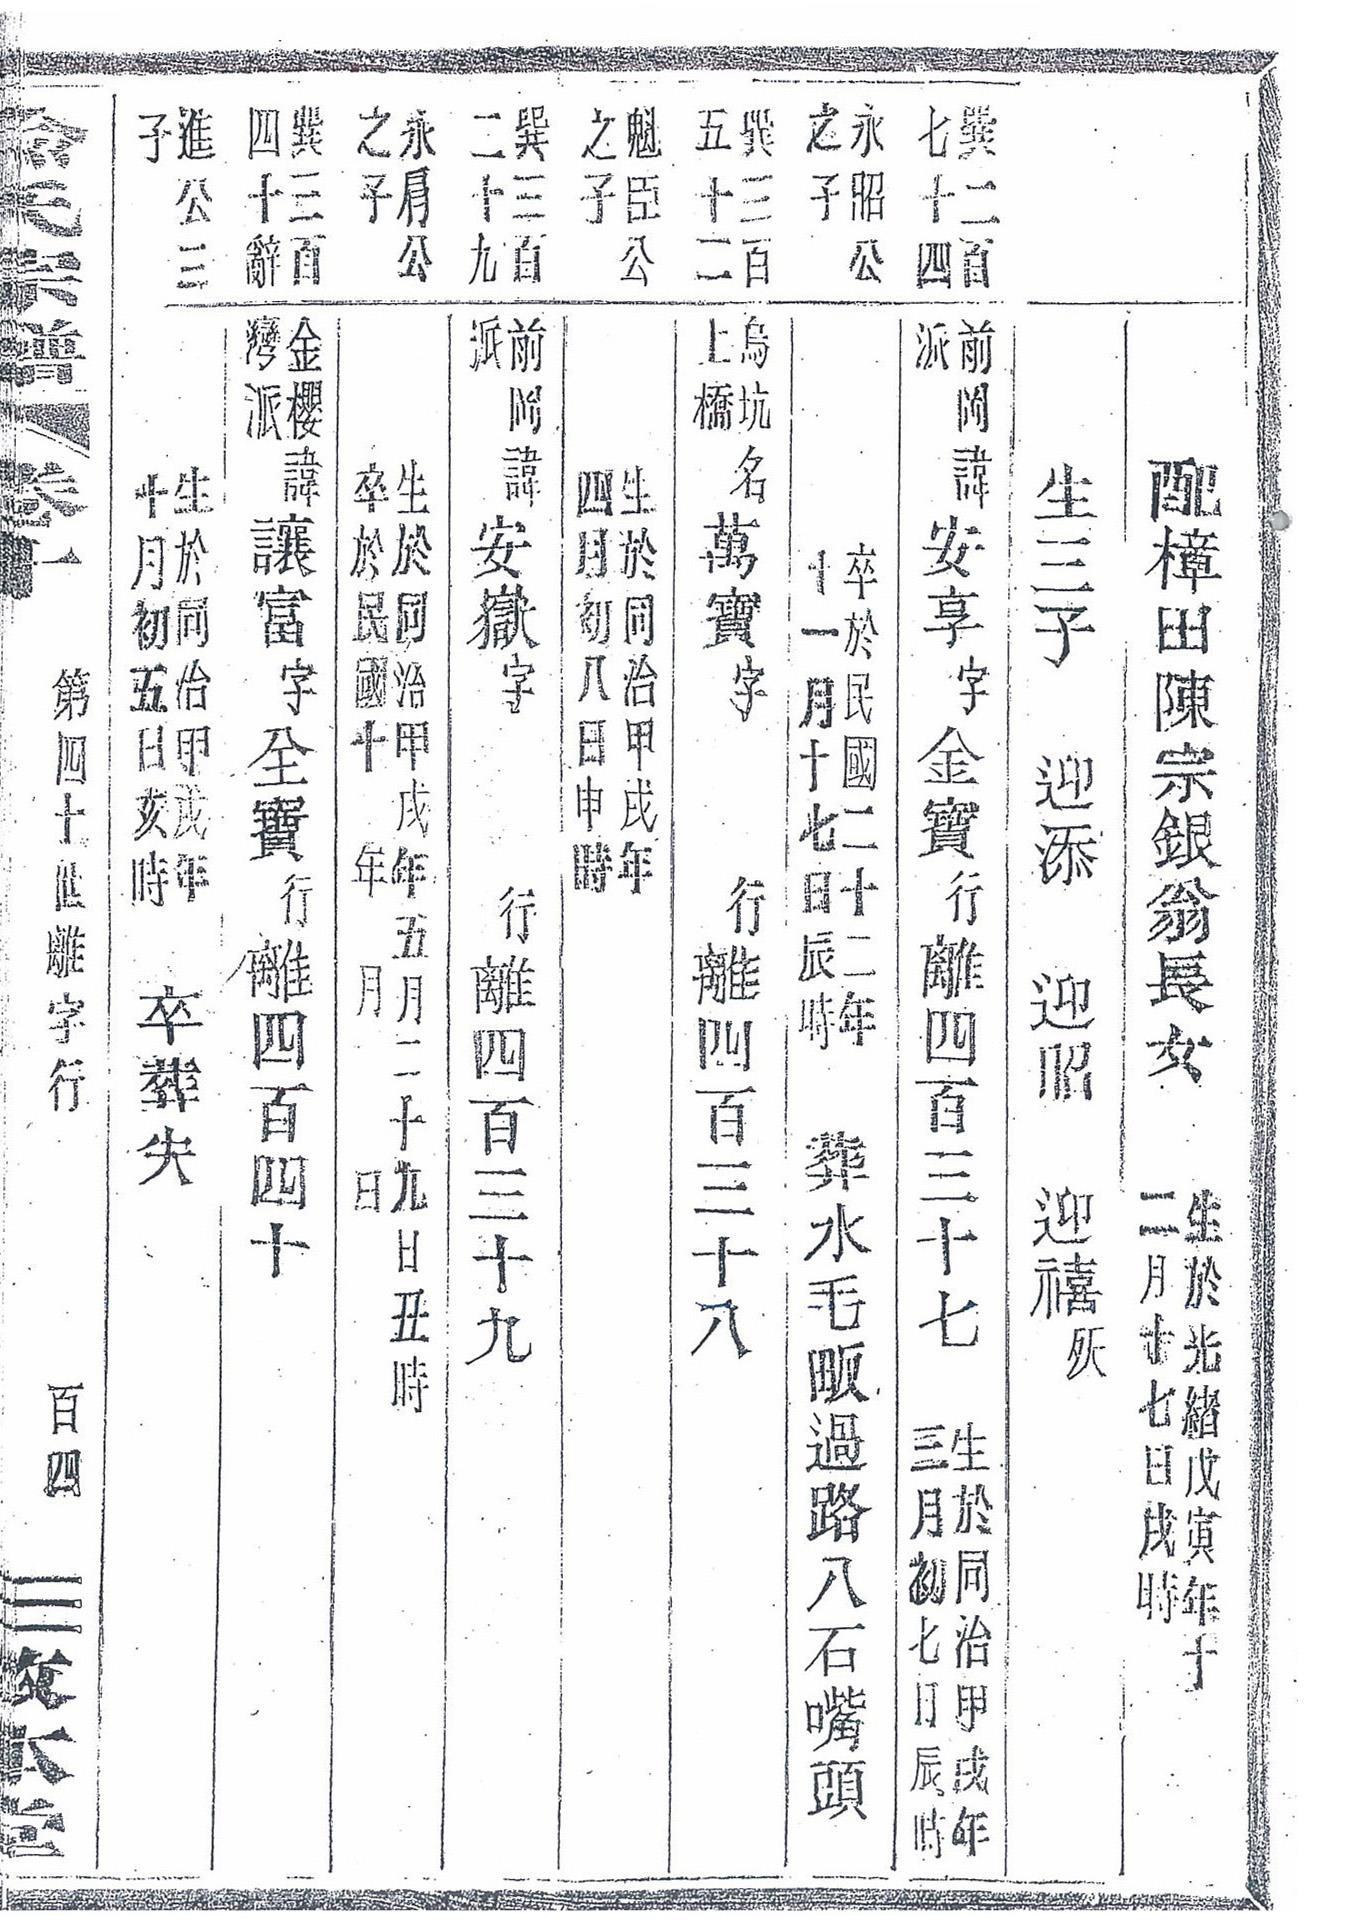 配樟田陳宗銀翁長女
生於光緒戊寅年十
二月十七日戌時
生三子 迎添 迎昭 迎禧
殀
巽二百
七十四
前岡諱安享字金寶行離四百三十七
派
生於同治甲戌年
三月初七日辰時
永昭公
之子
卒於民國二十二年
十一月十七日辰時
葬水毛畈過路八石嘴頭
巽三百
五十二
烏坑名萬寶字 行離四百三十八
上橋
魁臣公
之子
生於同治甲戌年
四月初八日申時
巽三百
二十九
前岡諱安嶽字 行離四百三十九
派
永肩公
之子
生於同治甲戌年五月二十九日丑時
卒於民國十 年 月 日
巽三百
四十辭
金櫻諱讓富字全寶行離四百四十
灣派
進公三
子
生於同治甲戌年
十月初五日亥時
卒葬失
氏宗譜 卷一 第四十世離字行 百四 三 本堂